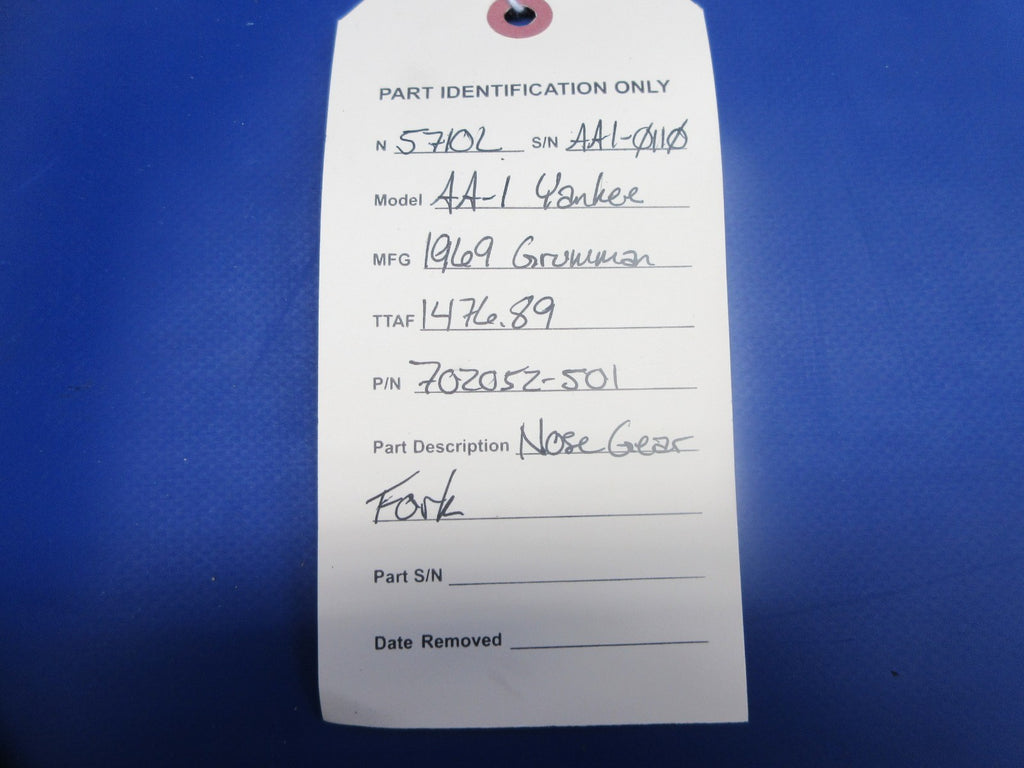 PART IDENTIFICATION ONLY
N 5710L S/N AA1-Ø11Ø
Model AA-1 Yankee
MFG 1969 Grumman
TTAF 1476.89
P/N 702052-501
Part Description Nose Gear
Fork
Part S/N
Date Removed